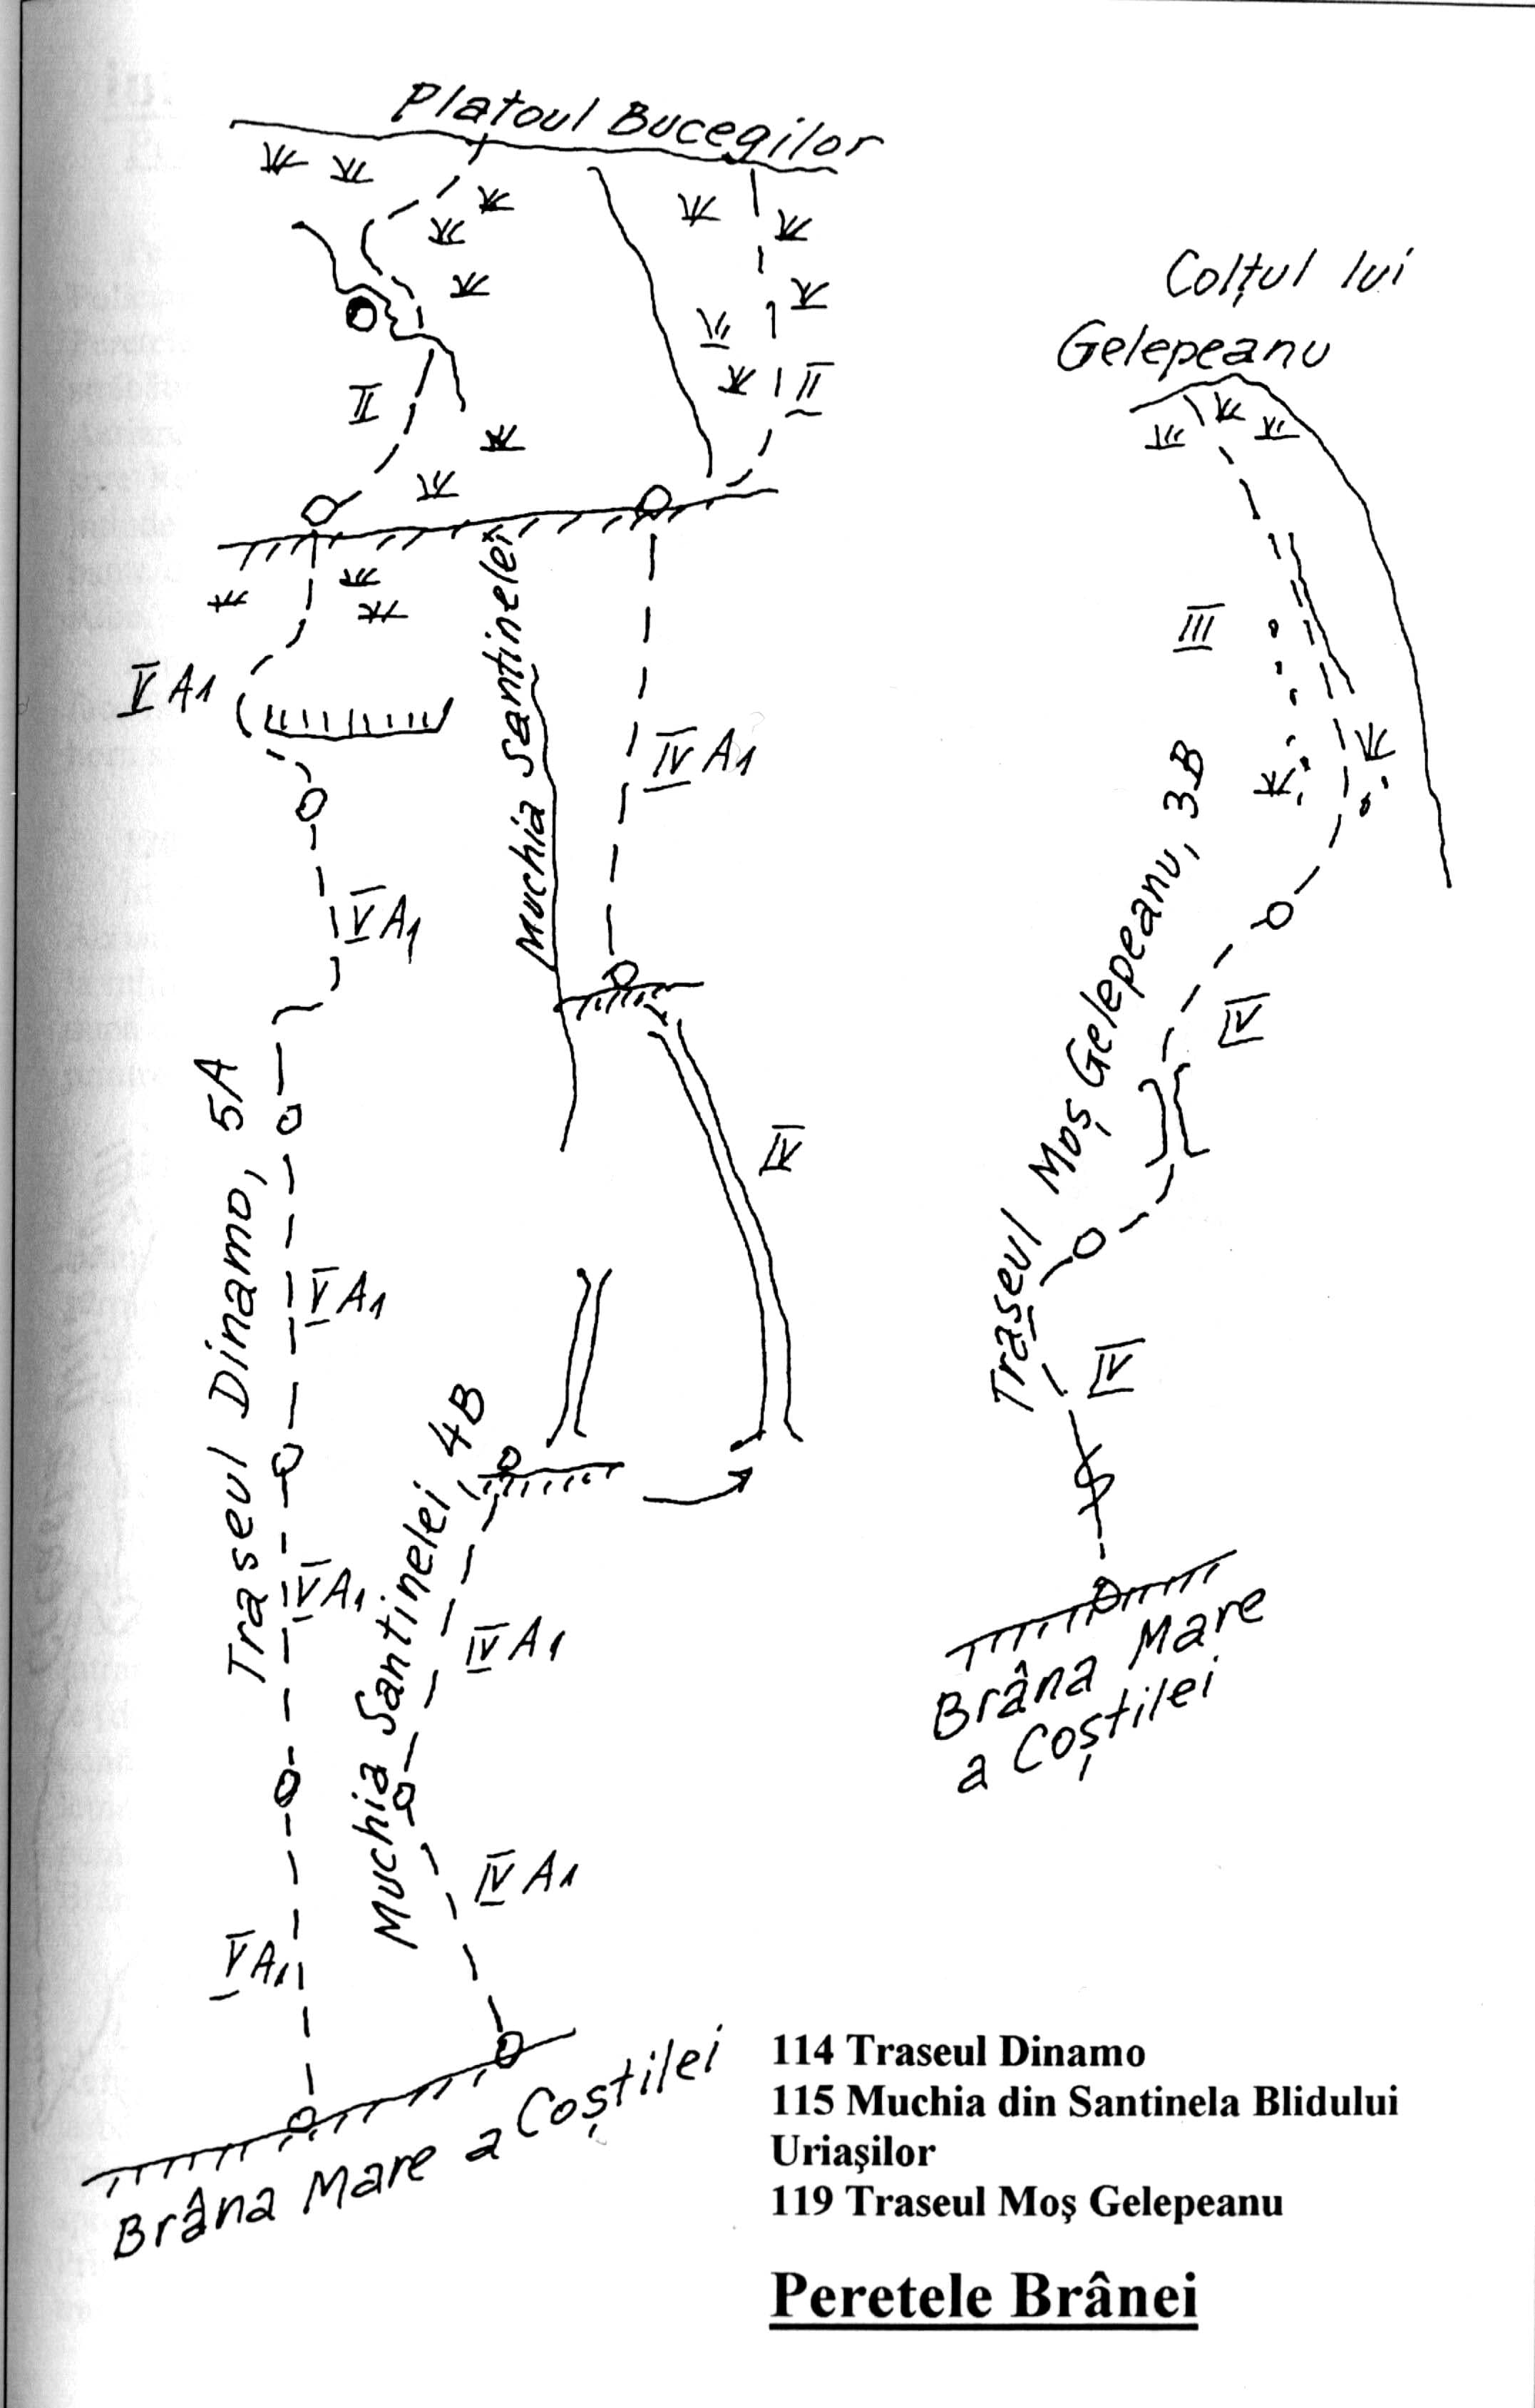 Platoul Bucegilor
II
II
V A1
Muchia Santinelei
IV A1
V A1
IV
Traseul Dinamo, 5A
V A1
Muchia Santinelei 4B
V A1
IV A1
IV A1
V A1
Brâna Mare a Coștilei
Colțul lui
Gelepeanu
III
Traseul Moș Gelepeanu, 3B
IV
IV
Brâna Mare
a Coștilei
114 Traseul Dinamo
115 Muchia din Santinela Blidului
Uriaşilor
119 Traseul Moş Gelepeanu
Peretele Brânei